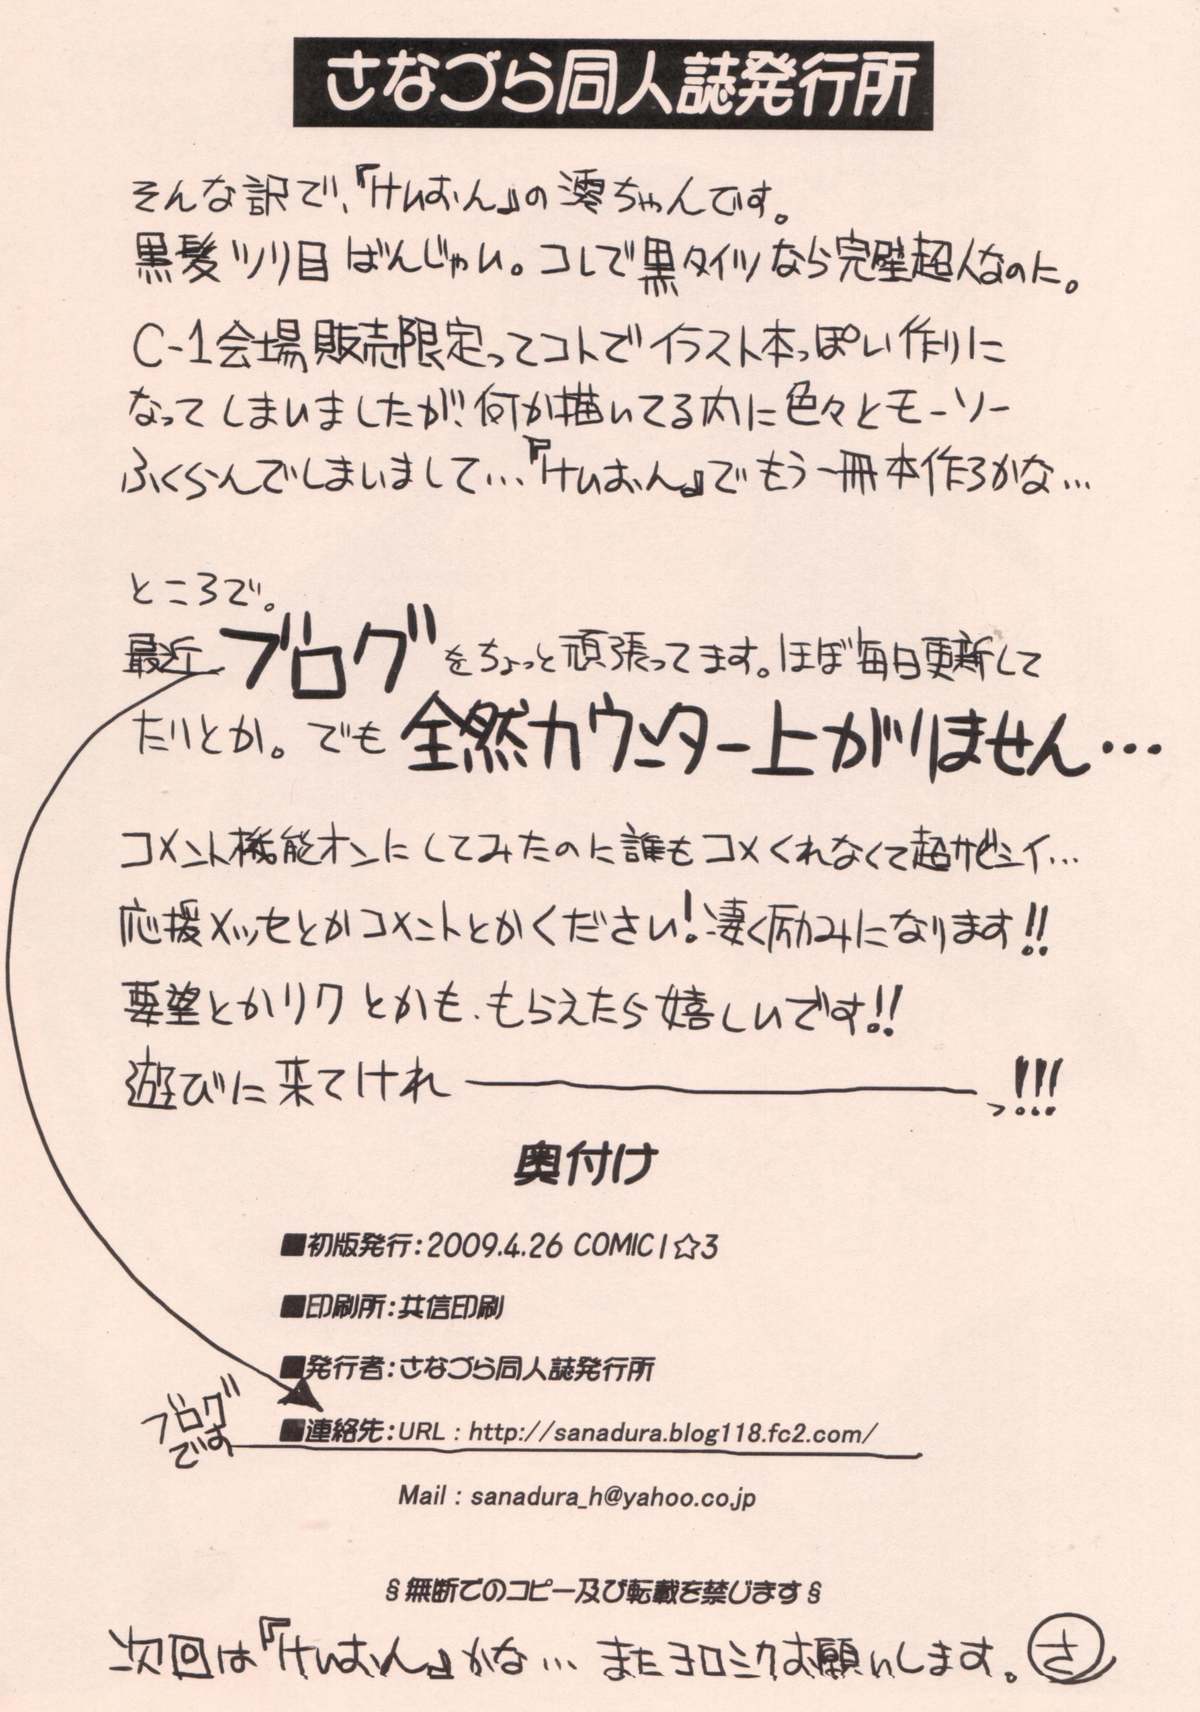 さなづら同人誌発行所
そんな訳で、『けいおん』の澪ちゃんです。
黒髪ツリ目ばんじゃい。コレで黒タイツなら完璧超人なのに。
C-1会場販売限定ってコトでイラスト本っぽい作りに
なってしまいましたが、何か描いてる内に色々とモーソー
ふくらんでしまいまして…『けいおん』でもう一冊本作ろかな…
ところで。
最近ブログをちょっと頑張ってます。ほぼ毎日更新して
たりとか。でも全然カウンター上がりません…
コメント機能オンにしてみたのに誰もコメくれなくて超サビシイ…
応援メッセとかコメントとかください!凄く励みになります!!
要望とかリクとかも、もらえたら嬉しいです!!
遊びに来てけれ――――――っ!!!
奥付け
■初版発行:2009.4.26 COMIC1☆3
■印刷所:共信印刷
■発行者:さなづら同人誌発行所
ブログです
■連絡先:URL : http://sanadura.blog118.fc2.com/
Mail : sanadura_h@yahoo.co.jp
§無断でのコピー及び転載を禁じます§
次回は『けいおん』かな… またヨロシクお願いします。さ